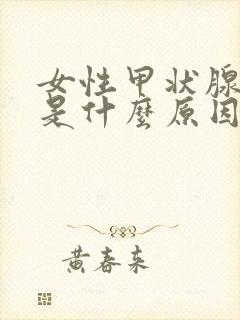 女性甲状腺
是什麼原因
黄春来